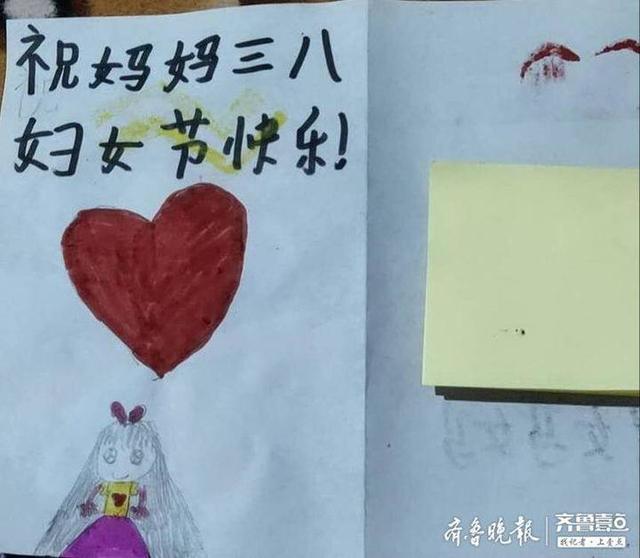 祝妈妈三八
妇女节快乐!
齐鲁晚报
齐鲁壹点
找记者·上壹点